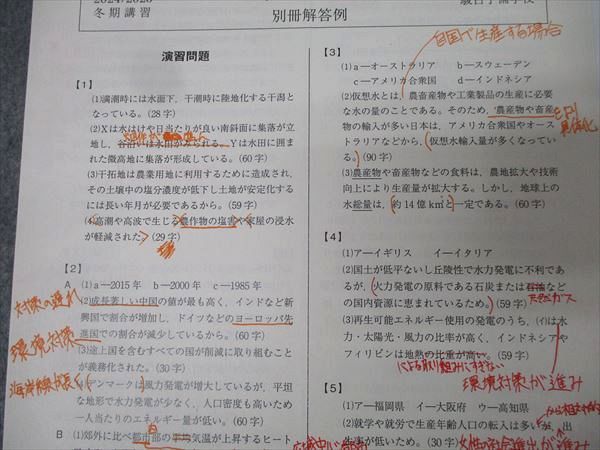 2024/2025
冬期講習
別冊解答例
駿台予備学校
演習問題
【1】
(1)満潮時には水面下，干潮時に陸地化する干潟と
なっている。(28字)
(2)Xは水はけや日当たりが良い南斜面に集落が立
地し，谷沿いは水田がみられる。Yは水田に囲ま
れた微高地に集落が形成している。(60字)
(3)干拓地は農業用地に利用するために造成され，
その土壌中の塩分濃度が低下し土地が安定化する
には長い年月が必要であるから。(59字)
(4)高潮や高波で生じる農作物の塩害や家屋の浸水
が軽減された。(29字)
【2】
A (1)a―2015年 b―2000年 c―1985年
対策の遅れ
(2)成長著しい中国の値が最も高く，インドなど新
興国で割合が増加し，ドイツなどのヨーロッパ先
環境対策
進国での割合が減少しているから。(60字)
(3)途上国を含むすべての国が削減に取り組むこと
が義務化された。(30字)
デンマークは風力発電が増大しているが，平坦
な地形で水力発電が少なく，人口密度も高いため
一人当たりのエネルギー量が低い。(60字)
B (1)郊外に比べ都市部の平均気温が上昇するヒート
【3】
自国で生産する場合
(1)a―オーストラリア b―スウェーデン
c―アメリカ合衆国 d―インドネシア
(2)仮想水とは，農畜産物や工業製品の生産に必要
な水の量のことである。そのため，農産物や畜産
物の輸入が多い日本は，アメリカ合衆国やオース
具体化
トラリアなどから，仮想水輸入量が多くなってい
る。(90字)
(3)農産物や畜産物などの食料は，農地拡大や技術
向上により生産量が拡大する。しかし，地球上の
水総量は，約14億km³と一定である。(60字)
【4】
(1)ア―イギリス イ―イタリア
(2)国土が低平ないし丘陵性で水力発電に不利であ
るが，火力発電の原料である石炭または石油など
の国内資源に恵まれているため。(59字)
天然ガス
(3)再生可能エネルギー使用の発電のうち，(イ)は水
力・太陽光・風力の比率が高く，インドネシアや
フィリピンは地熱の比重が高い。(59字)
による取り組みにすぎない
環境対策が進み
【5】
(1)ア―福岡県 イ―大阪府 ウ―高知県
(2)就学や就労で生産年齢人口の転入は多いが，出
生率が低いため。(30字)
女性の社会進出が進み